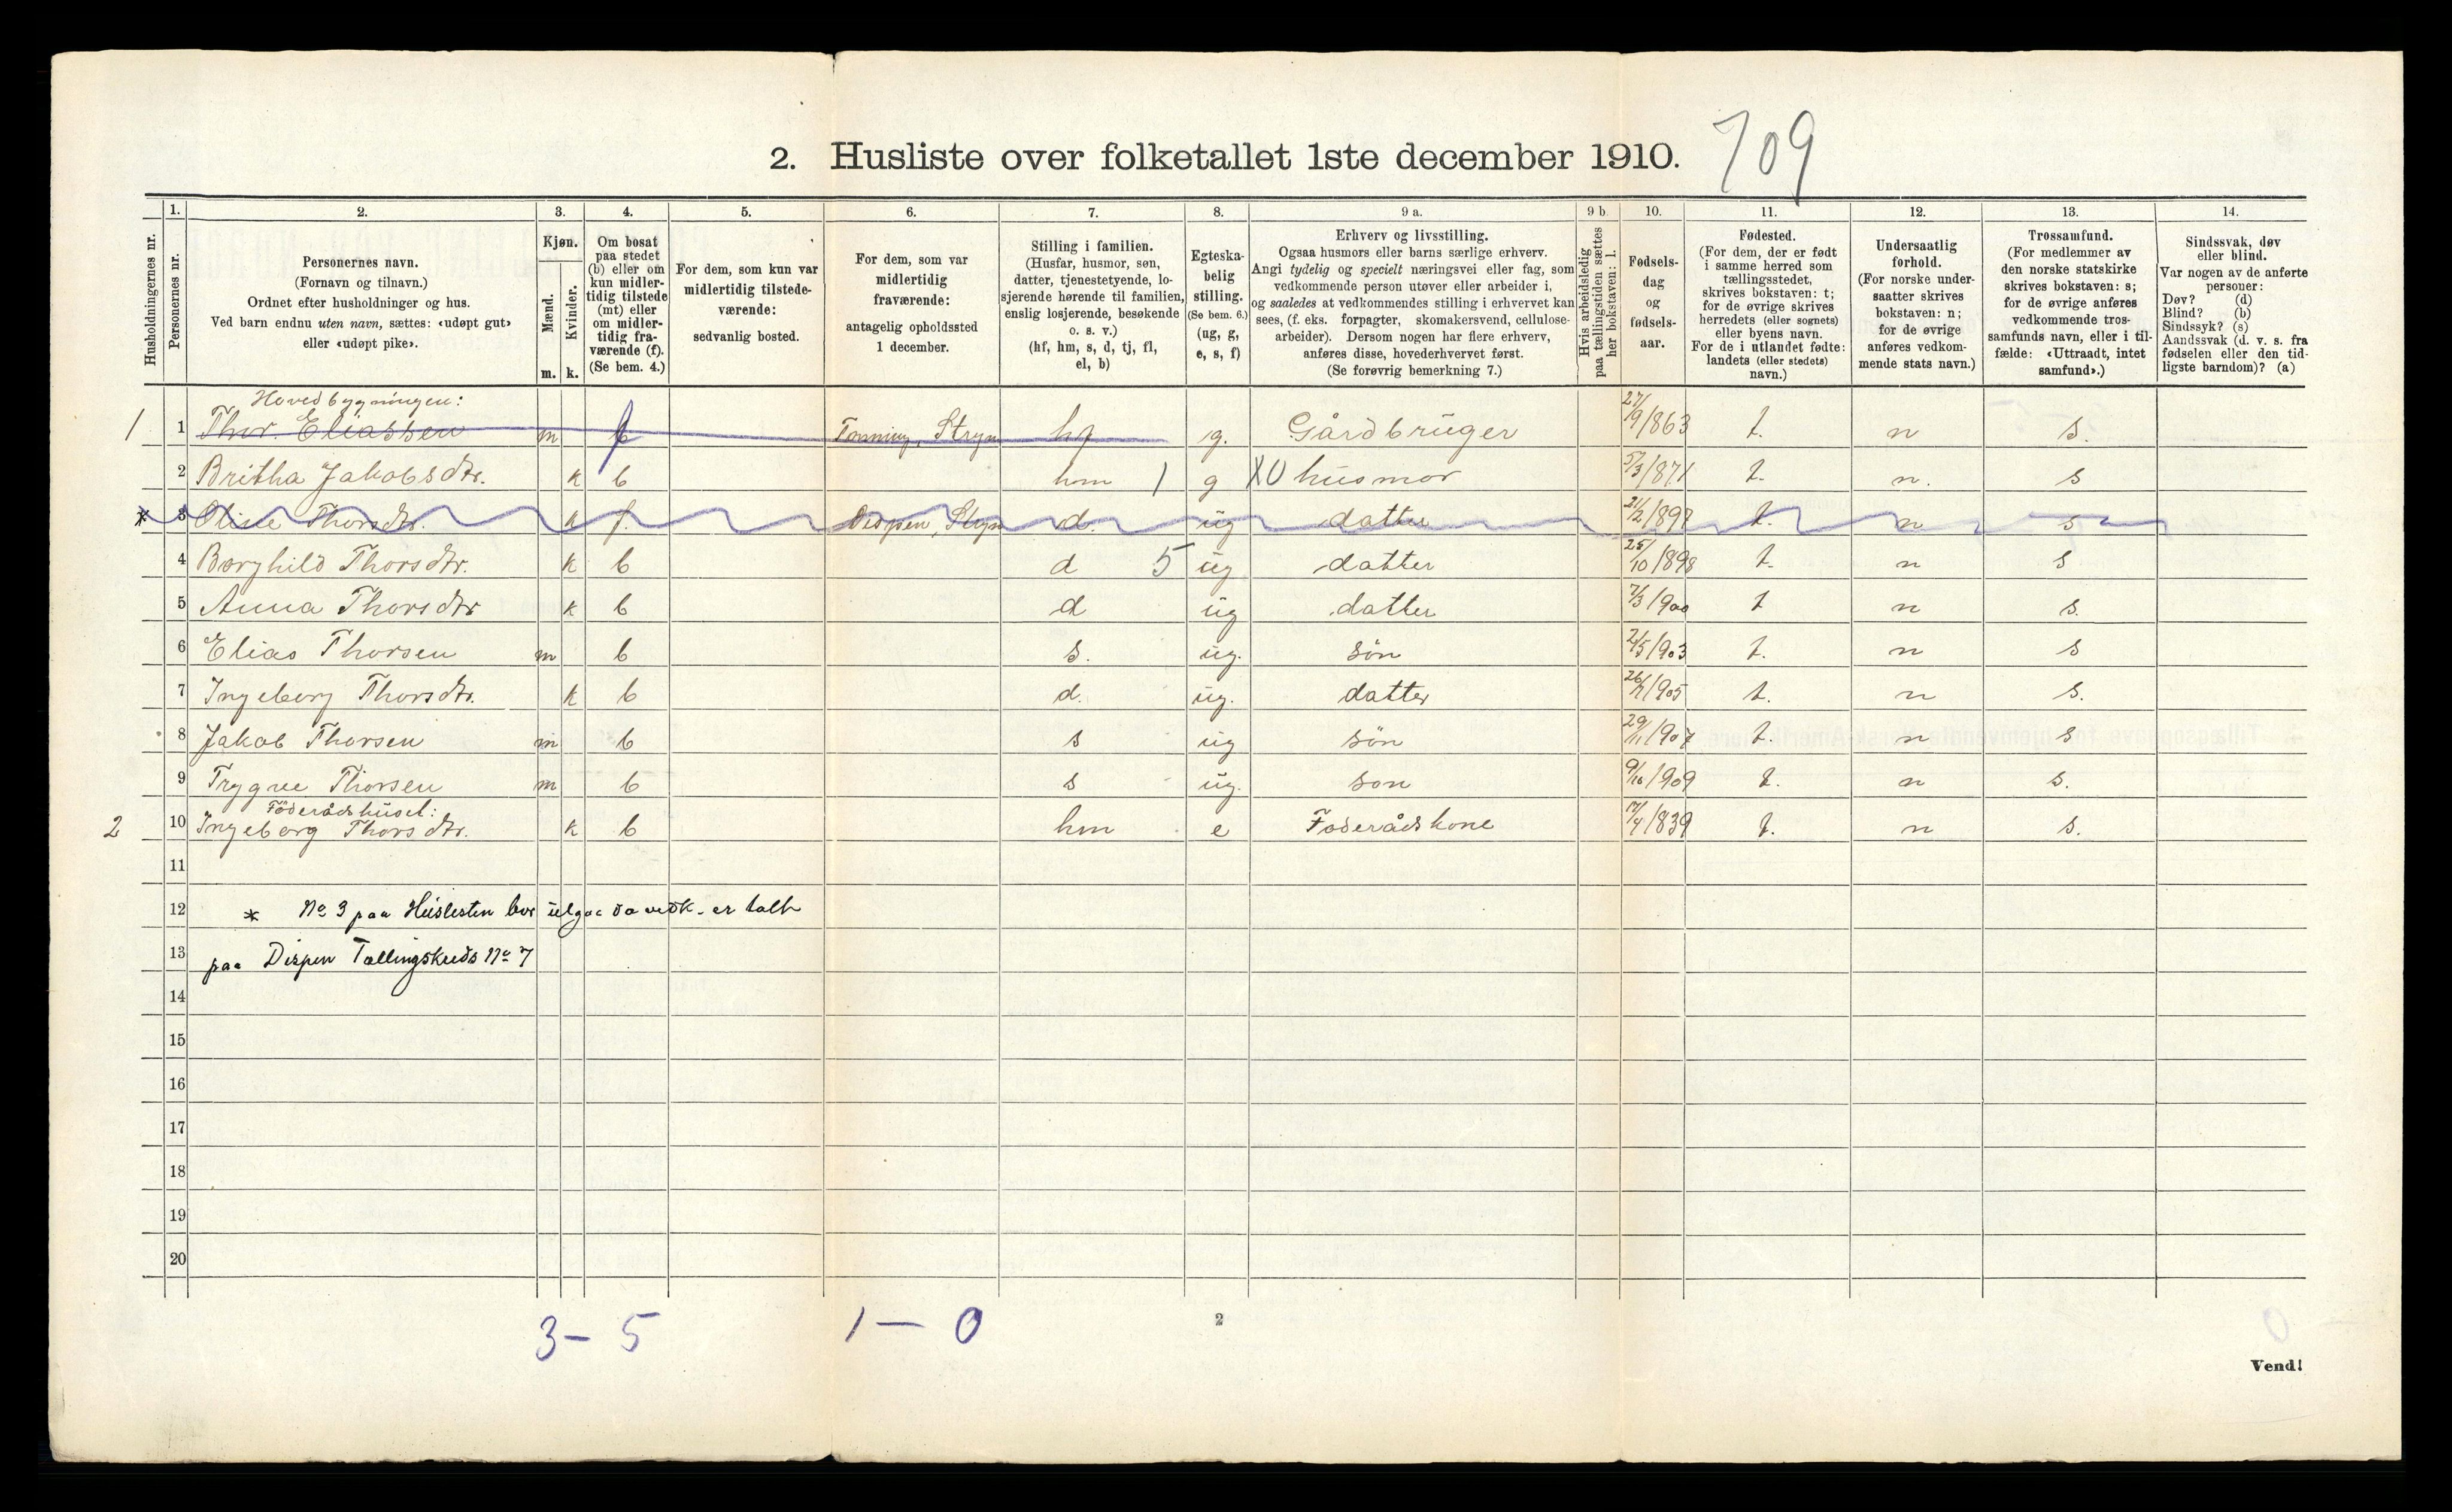 2. Husliste over folketallet 1ste december 1910. 709
Husholdningernes nr.
1. Personernes nr.
2. Personernes navn. (Fornavn og tilnavn.) Ordnet efter husholdninger og hus. Ved barn endnu uten navn, sættes: «udøpt gut» eller «udøpt pike».
3. Kjøn. Mænd. m. Kvinder. k.
4. Om bosat paa stedet (b) eller om kun midler-tidig tilstede (mt) eller om midler-tidig fra-værende (f). (Se bem. 4.)
5. For dem, som kun var midlertidig tilstede-værende: sedvanlig bosted.
6. For dem, som var midlertidig fraværende: antagelig opholdssted 1 december.
7. Stilling i familien. (Husfar, husmor, søn, datter, tjenestetyende, lo-sjerende hørende til familien, enslig losjerende, besøkende o. s. v.) (hf, hm, s, d, tj, fl, el, b)
8. Egteska-belig stilling. (Se bem. 6.) (ug, g, e, s, f)
9 a. Erhverv og livsstilling. Ogsaa husmors eller barns særlige erhverv. Angi tydelig og specielt næringsvei eller fag, som vedkommende person utøver eller arbeider i, og saaledes at vedkommendes stilling i erhvervet kan sees, (f. eks. forpagter, skomakersvend, cellulose-arbeider). Dersom nogen har flere erhverv, anføres disse, hovederhvervet først. (Se forøvrig bemerkning 7.)
9 b. Hvis arbeidsledig paa tællingstiden sættes her bokstaven: l.
10. Fødsels-dag og fødsels-aar.
11. Fødested. (For dem, der er født i samme herred som tællingsstedet, skrives bokstaven: t; for de øvrige skrives herredets (eller sognets) eller byens navn. For de i utlandet fødte: landets (eller stedets) navn.)
12. Undersaatlig forhold. (For norske under-saatter skrives bokstaven: n; for de øvrige anføres vedkom-mende stats navn.)
13. Trossamfund. (For medlemmer av den norske statskirke skrives bokstaven: s; for de øvrige anføres vedkommende tros-samfunds navn, eller i til-fælde: «Uttraadt, intet samfund».)
14. Sindssvak, døv eller blind. Var nogen av de anførte personer: Døv? (d) Blind? (b) Sindssyk? (s) Aandssvak (d. v. s. fra fødselen eller den tid-ligste barndom)? (a)
Hovedbygningen:
1 1 Thor Eliassen m f Tonning, Stryn hf g. Gårdbrüger 27/9/863 t. n s.
2 Britha Jakobsdtr. k b hm 1 g XO hüsmor 5/3/871 t. n. s
* 3 Oline Thorsdtr. k f. Dispen, Stryn d. üg datter 21/2/897 t. n s
4 Borghild Thorsdtr. k b d 5 üg datter 25/10/898 t. n s
5 Anna Thorsdtr k b d üg datter 7/3/900 t n s.
6 Elias Thorsen m b s. üg. sön 2/5/903 t. n s
7 Ingeborg Thorsdtr. k b d. üg. datter /905 t. n s.
8 Jakob Thorsen m b s üg sön 29/11/907 t. n s
9 Trygve Thorsen m b s üg. son 9/10/909 t. n s.
Föderådshüset:
2 10 Ingeborg Thorsdtr. k b hm e Foderådskone 17/4/839 t. n s.
11
12 * No 3 paa Hüslisten bør ütgaa da vedk. er talt
13 paa Dispen Tællingskreds No 7
14
15
16
17
18
19
20
3 – 5 1 – 0 2 0
Vend!